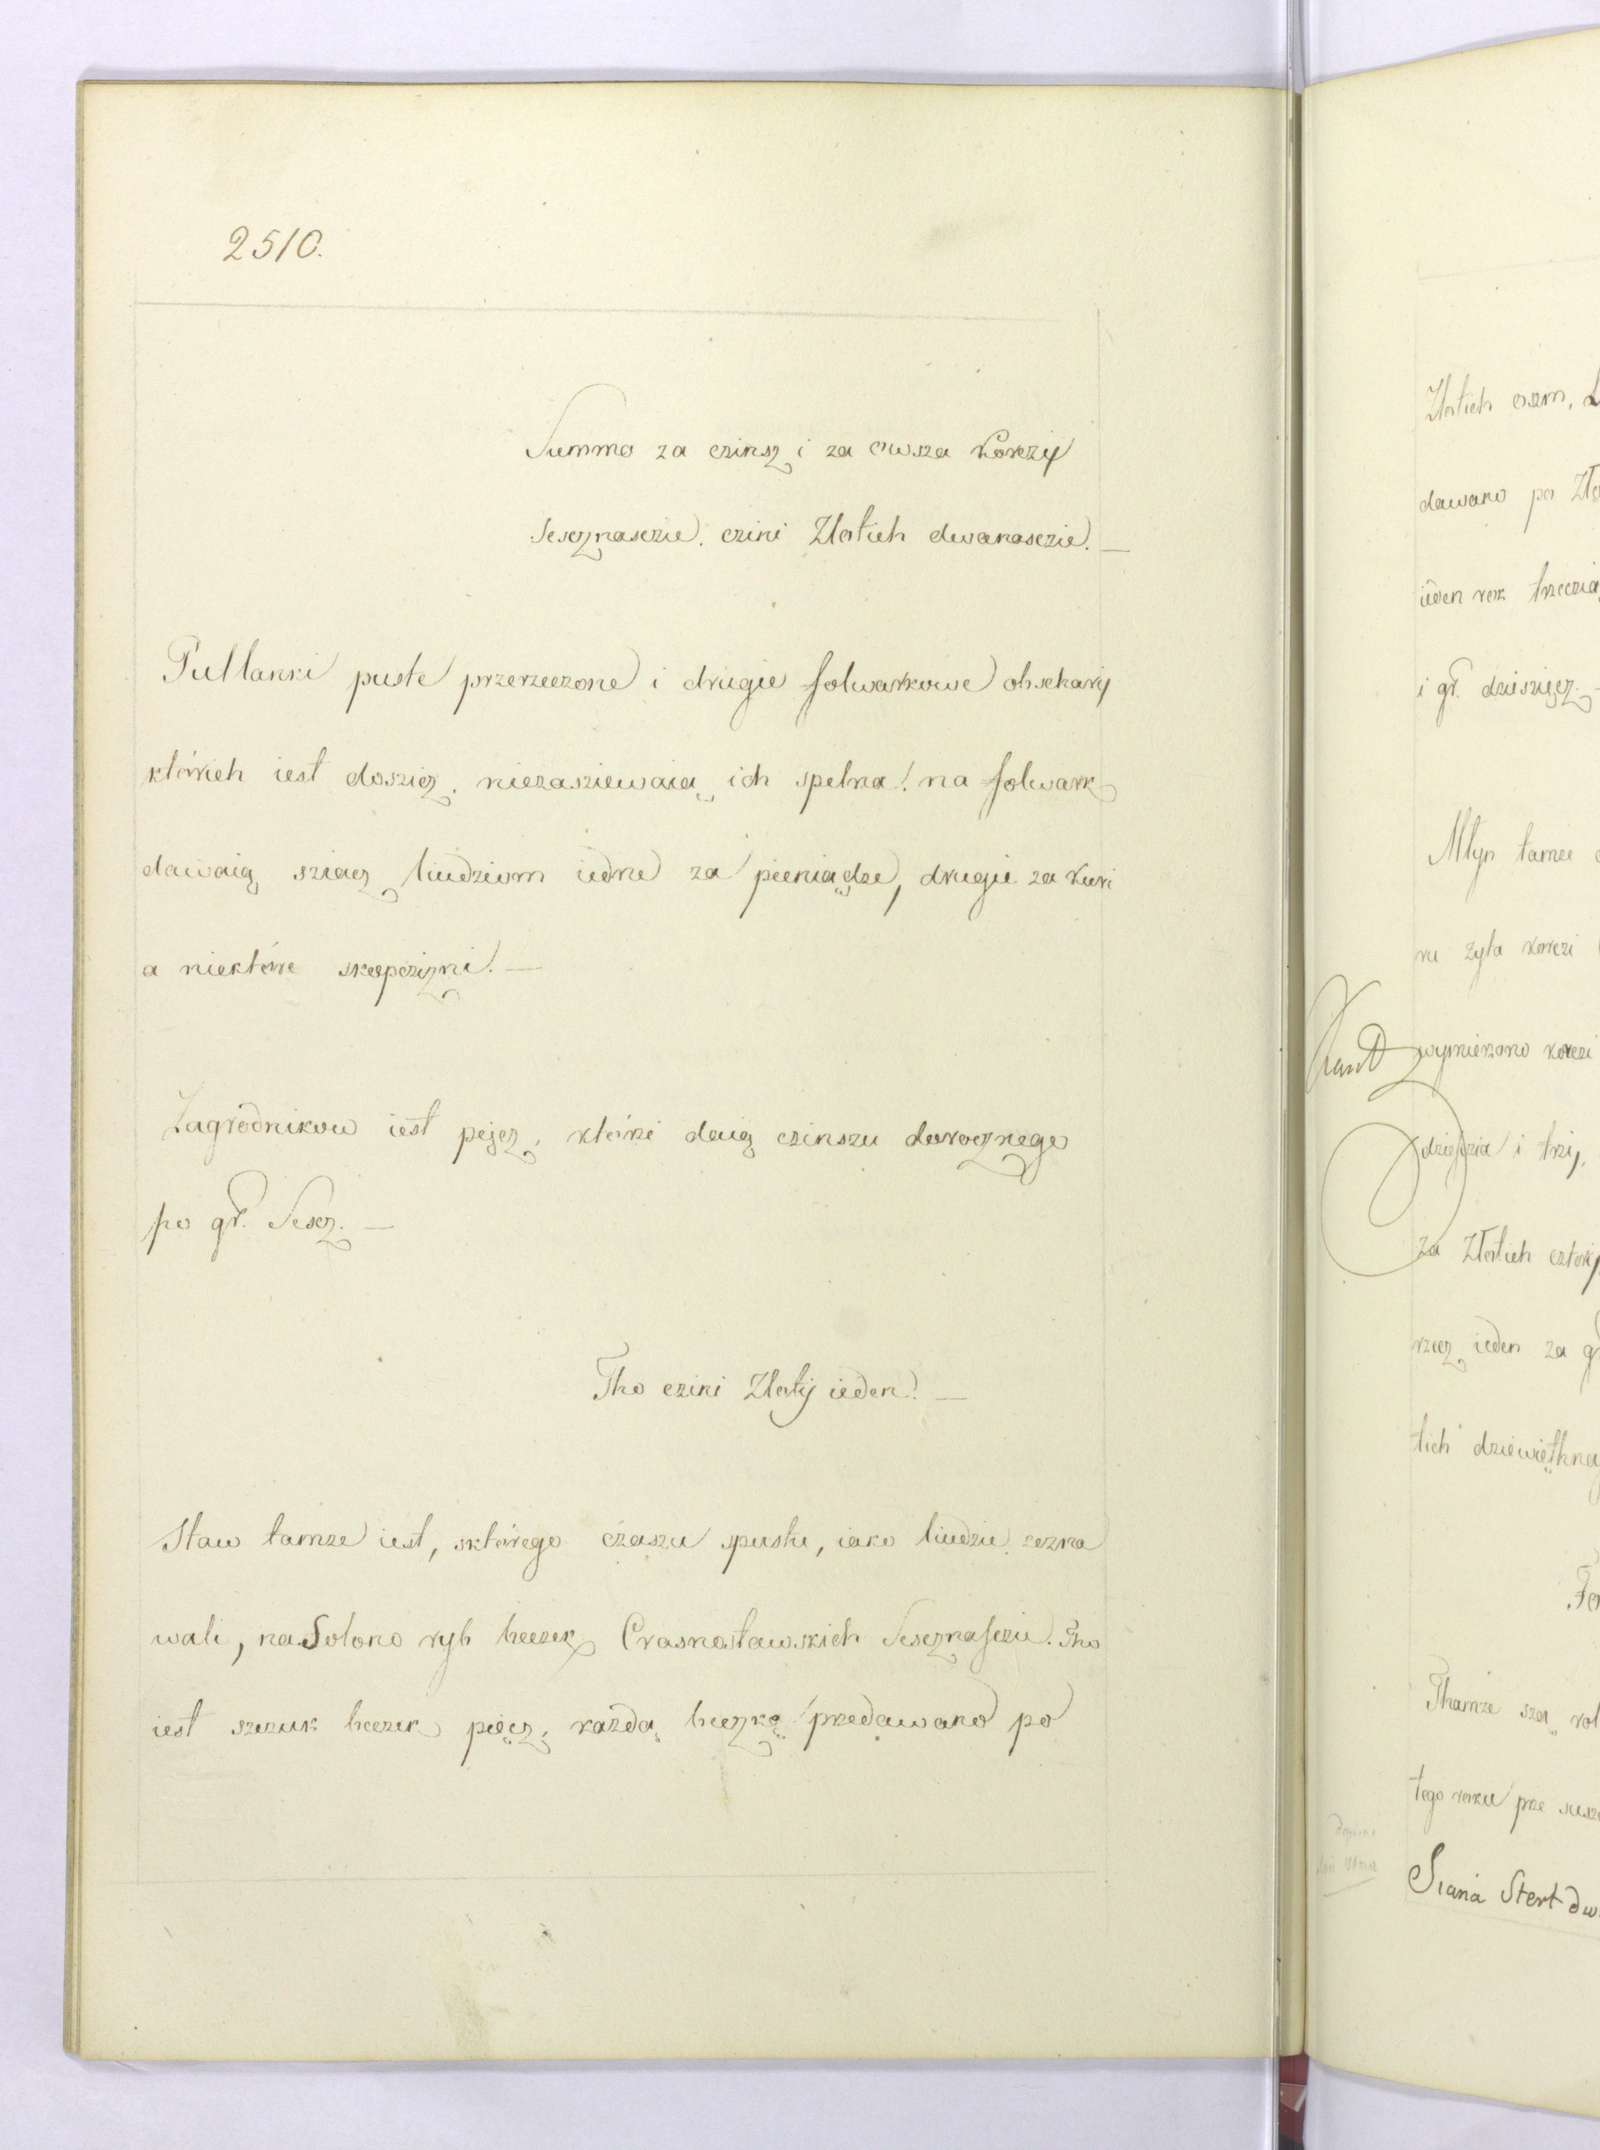 2510.
Summa za czinsz i za owsza korczy
Sescznasczie. czini Zlotich dwanasczie. —
Pullanki puste przerzeczone i drugie folwarkowe obschary
których iest doszicz. niezasziewaią ich spelna. na folwark
dawaią sziacz liudziom iedne za pieniądze, drugie za kuri
a niektóre skopczizni. —
Zagrodnikow iest pięcz, którzi daią czinszu dorocznego
po gr. Sescz. —
Tho czini Zloty ieden. —
Staw tamze iest, sktórego czaszu spustu, iako liudzie zezna
wali, nasolono ryb beczek Crasnostawskich Sescznasczie. Tho
iest szczuk beczek pięcz, każdą beczkę przedawano po
Zlotich oszm,
dawano po
ieden rok
i gr. dziesięcz. —
Młyn tamze
zyta korczi
wymierzono korczi
i trzy,
za Złotich
ieden za
tich
Thamze szą
tego roku prze